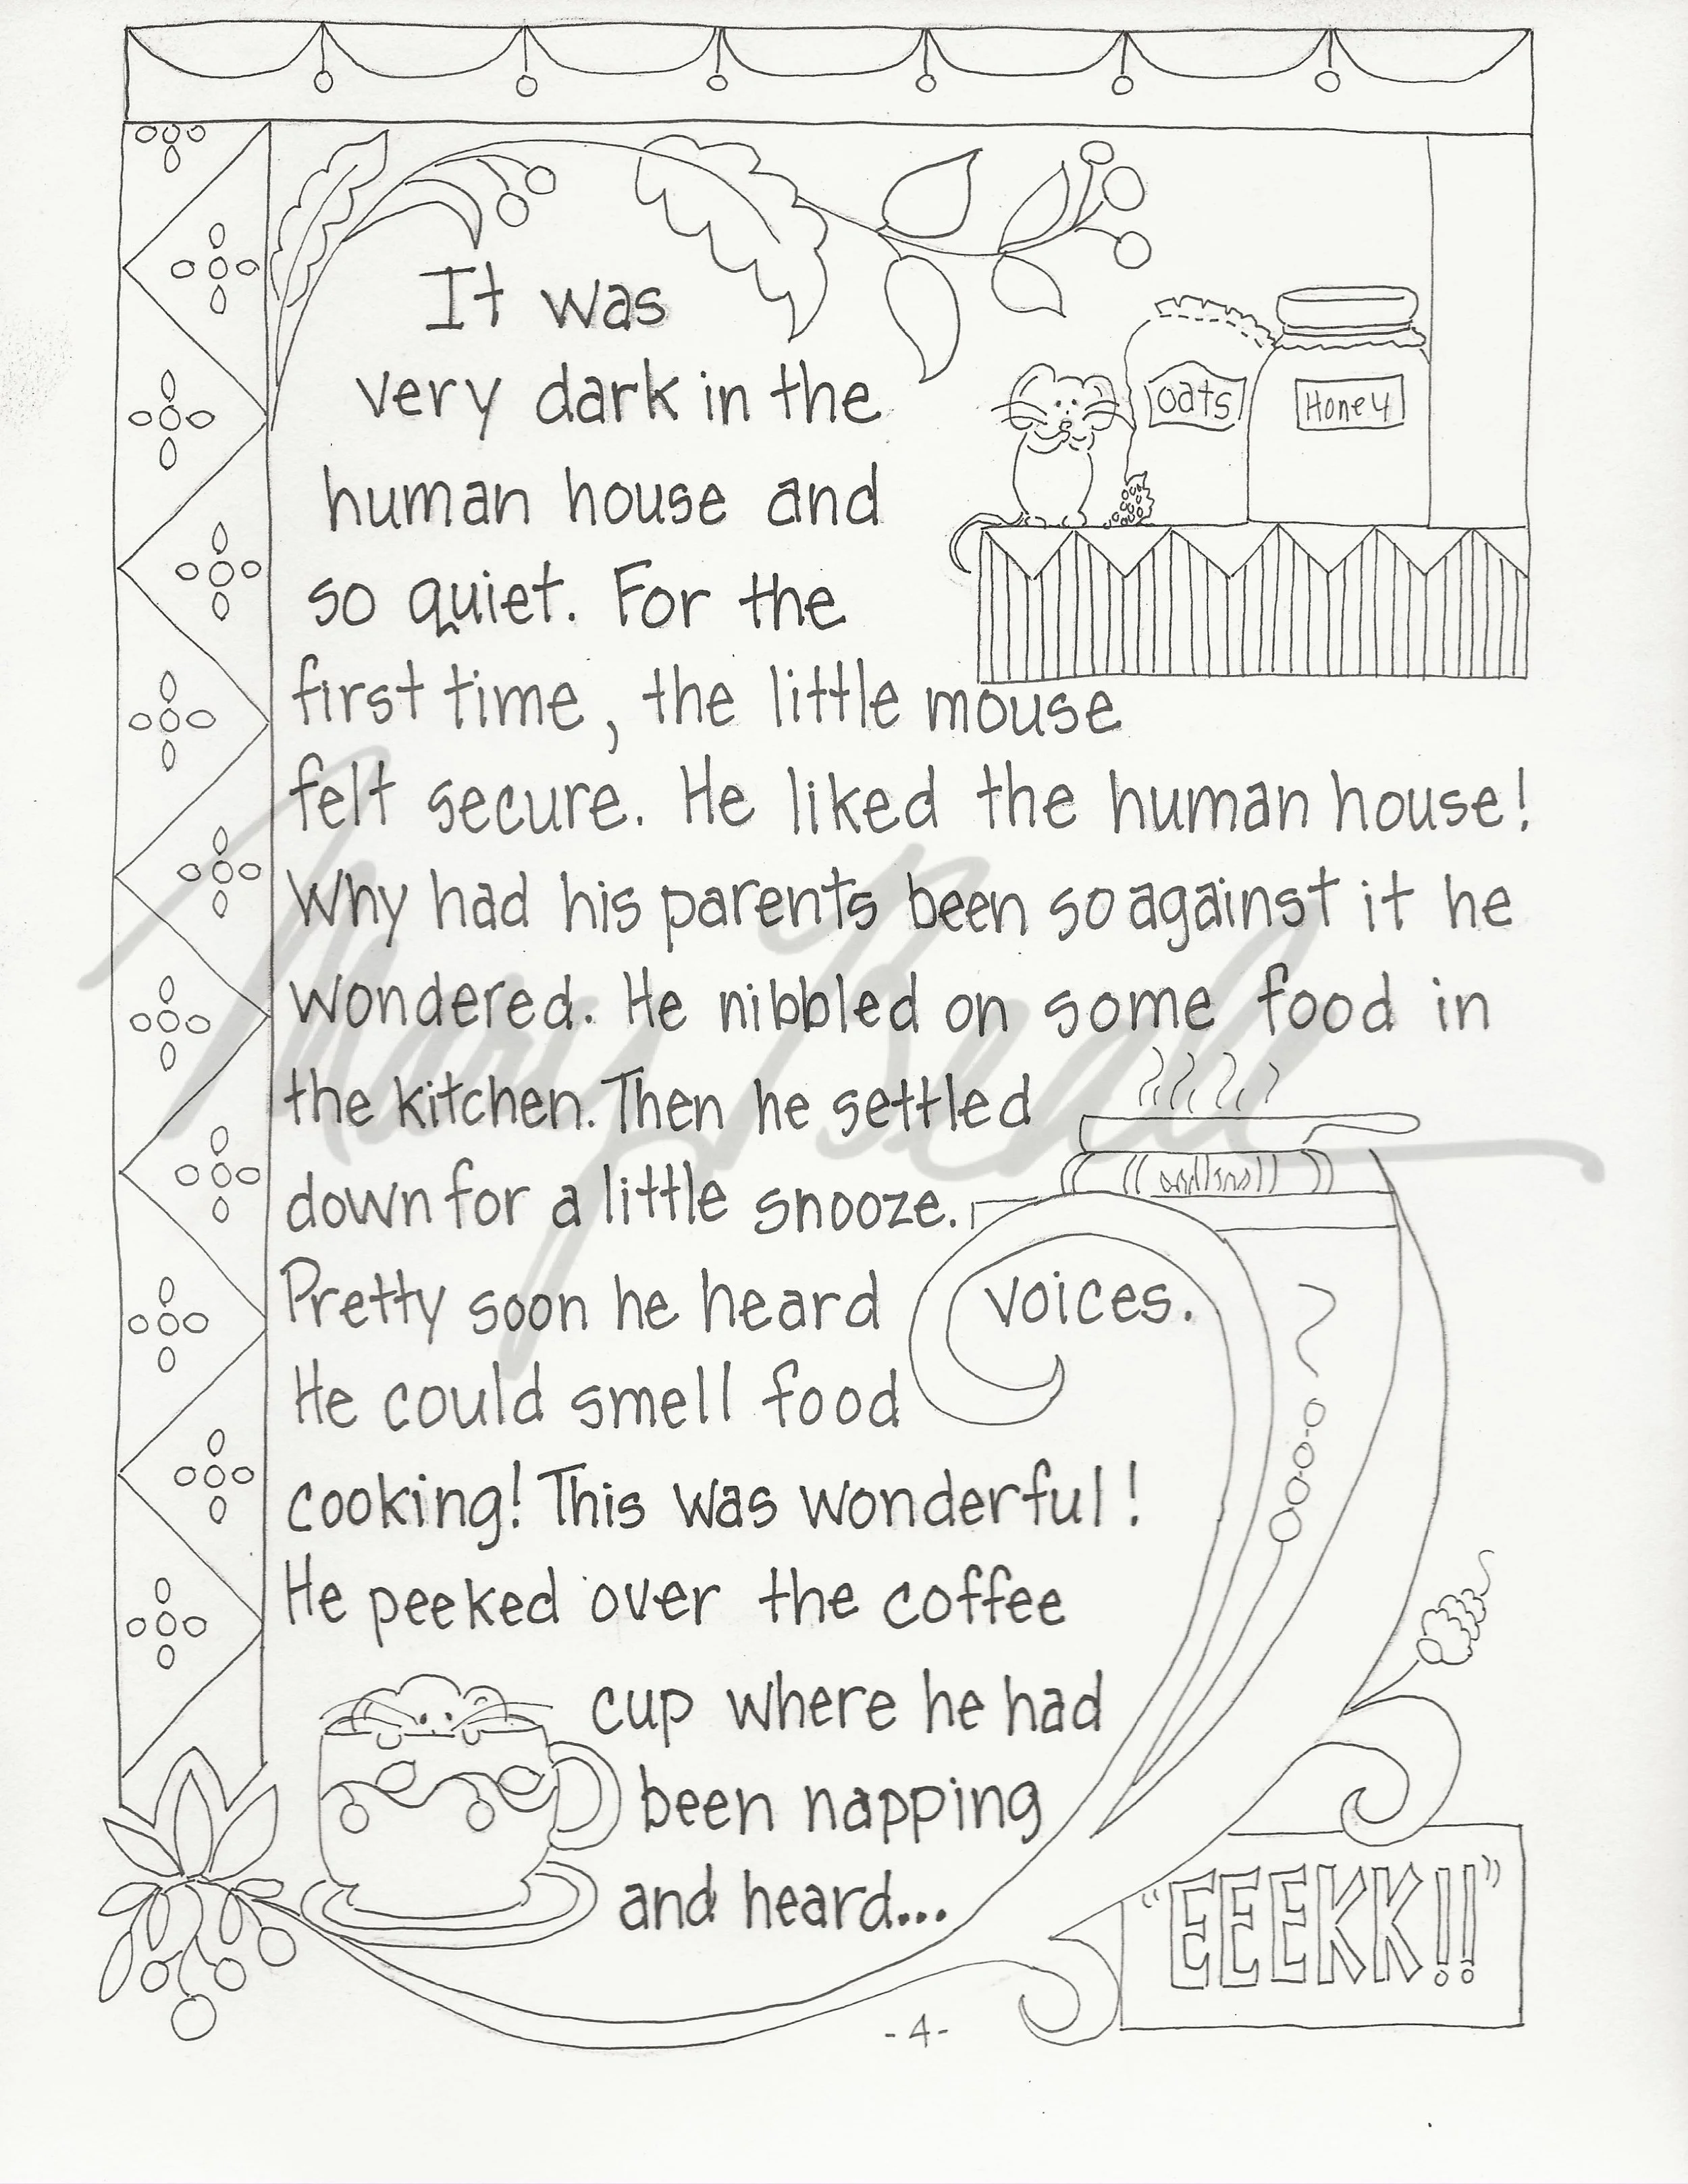 It was
very dark in the
human house and
so quiet. For the
first time, the little mouse
felt secure. He liked the human house!
Why had his parents been so against it he
wondered. He nibbled on some food in
the kitchen. Then he settled
down for a little snooze.
Pretty soon he heard voices.
He could smell food
cooking! This was wonderful!
He peeked over the coffee
cup where he had
been napping
and heard...
"EEEKK!!"
oats
Honey
Mary Beall
-4-